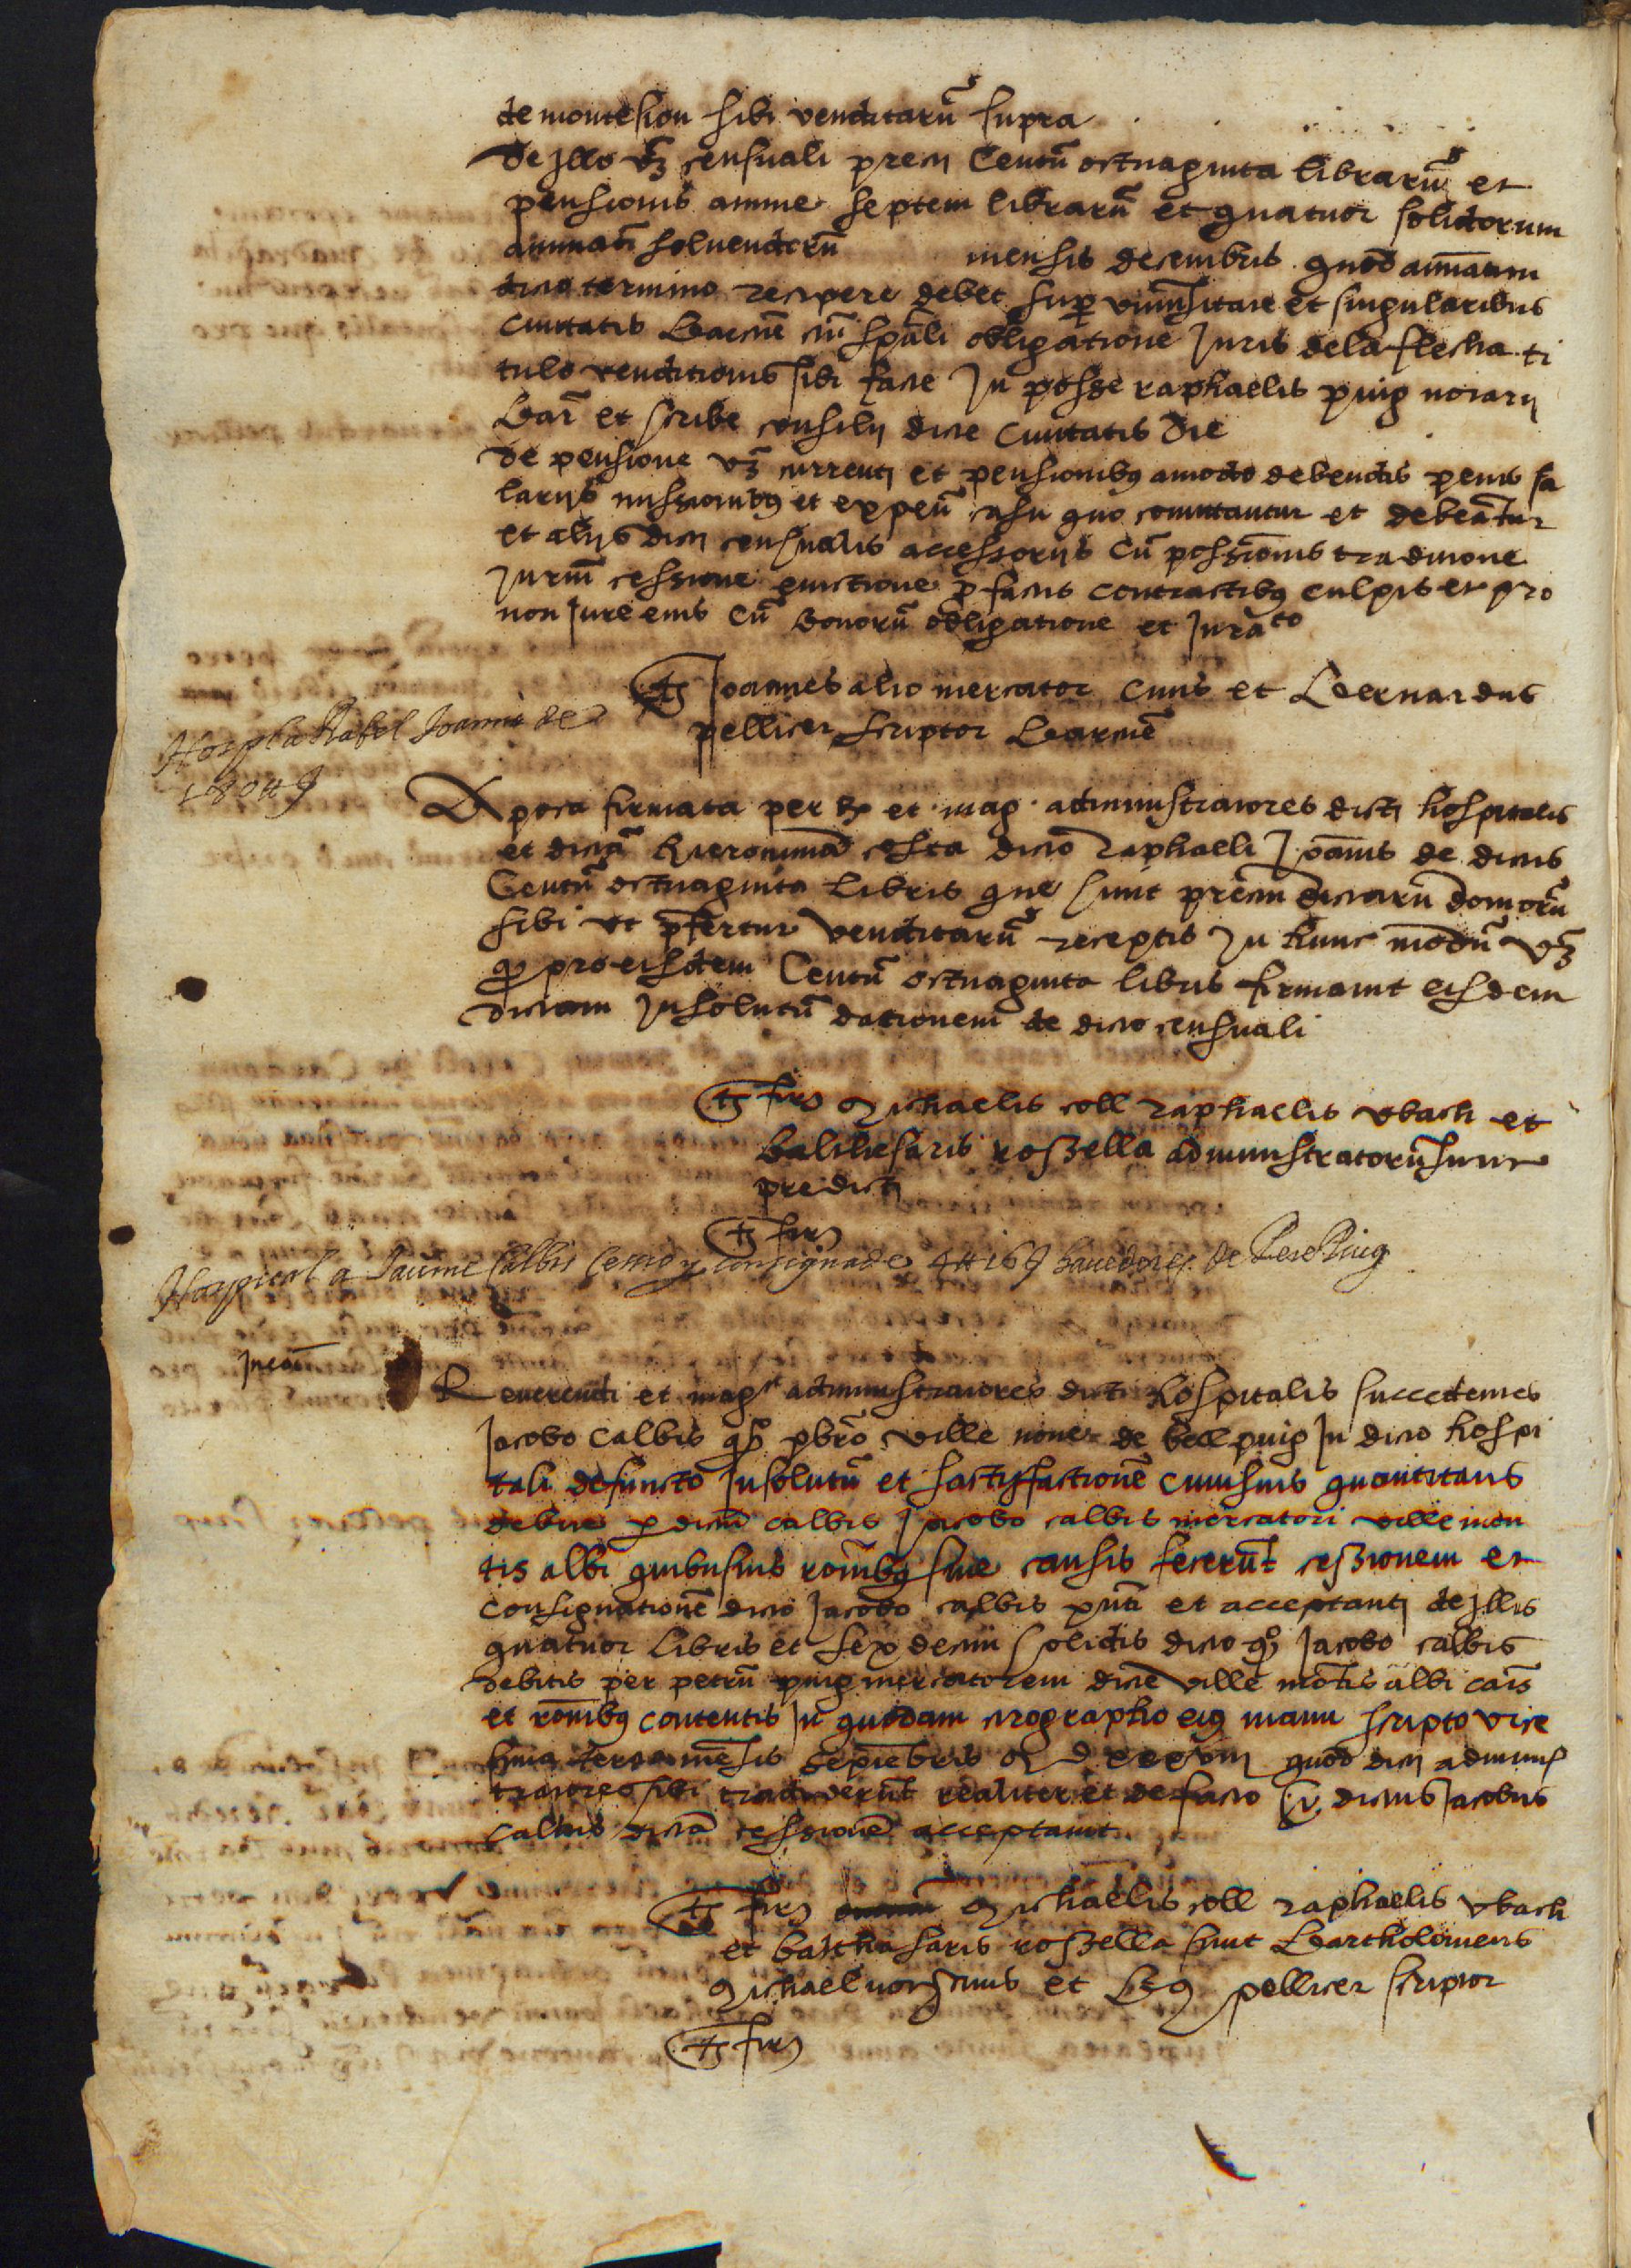 de montesion sibi venditarũ supra
de jllo vz censuali precij Centũ octuaginta librarũ et
pensionis annue septem librarũ et quatuor solidorum
annuati͂ soluendorũ mensis decembris quod annatim
dicto termino recipere debet sup vniuersitate et singularibus
Ciuitatis Barcne͂ cũ spāli obligatione Juris dela flecha ti
tulo venditionis sibi facte Jn posse raphaelis puig notarij
Bar͂ et scribe consilij dicte Ciuitatis Die
de pensione vz currenti et pensionibꝯ amodo debendis penis sa
larijs missionibꝯ et expeñ casu quo comittantur et debeātur
et alijs dicti censualis accessorijs Cũ possiōnis traditione
Jurium̃ cessione euictione p factis contractibꝯ culpis et pro
non Jure eius Cũ bonorũ obligatione et Jurāto
ts Joannes alio mercator Ciuis et Bernardus
pellicer scriptor Barcine͂
Hospl a Rafel Joannis de
180 ₶ 
Apoca firmata per Rx et mag administratores dicti hospitalis
et dictā hieronimā costa dicto raphaeli Joānis de dictis
Centũ octuaginta Libris que sunt precium dictarũ domorũ
sibi vt p̄fertur venditarũ receptis Jn hunc modũ vz
q pro eisdem Centũ octuaginta libris firmauit eisdem
dictam Jnsolutũ dationem de dicto censuali
ts fir͂ Michaelis coll raphaelis vbach et
balthesaris rossella administratorũ sunt
predicti
ts fir͂
Hospital a Jaume Calbis Cessio y consignade 4 ₶ 16 ß hauedores de Pere Puig
Reuerendi et magci administratores dicti hospitalis succedentes
Jacobo Calbis qo pbrō ville noue de bellpuig Jn dicto hospi
tali defuncto Jnsolutũ et sactisfactionē cuiusuis quantitatis
debite p dictũ calbis Jacobo calbis mercatori ville mon
tis albi quibusuis rōnibꝯ siue causis fecerũt cessionem et
consignationē dicto Jacobo calbis pñti et acceptanti de jllis
quatuor Libris et sexdecim solidis dicto qo Jacobo calbis
debitis per petrũ puig mercatorem dicte ville mōtis albi cāis
et rōnibꝯ contentis Jn quodam cirographo eiꝯ manu scripto vice
sima tercia mēsis septēbris M D xxxviij quod dicti adminis
tratores sibi tradiderũt realiter et de facto dictus Jacobus
calbis dictā cessionē acceptauit
ts fir͂ Michaelis coll raphaelis vbach
et balthasaris rossella sunt Bartholomeus
Michael et pellicer scriptor
ts fir͂